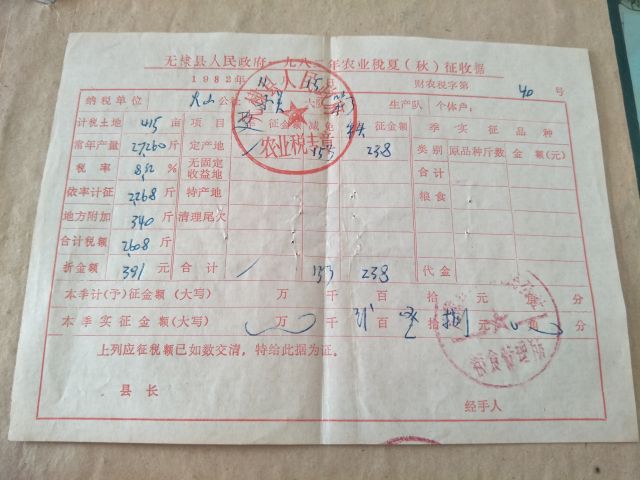 无棣县人民政府一九八二年农业税夏（秋）征收据
1982年 11月15日 财农税字第 40 号
纳税单位 火山 公社 大队 生产队 个体户：
计税土地 415 亩 项目 征金额 减免 征金额 季实征品种
常年产量 27,260 斤 定产地 / 153 238 类别 原品种斤数 金额（元）
税率 8.32 % 无固定收益地 合计
依率计征 2,268 斤 特产地 粮食
地方附加 340 斤 清理尾欠
合计税额 2,608 斤
折金额 391 元 合计 / 153 238 代金
本季计（予）征金额（大写） 万 千 百 拾 元 角 分
本季实征金额（大写） 万 千 百 拾 元 角 分
上列应征税额已如数交清，特给此据为证。
县长
经手人
农业税专章
粮食管理所